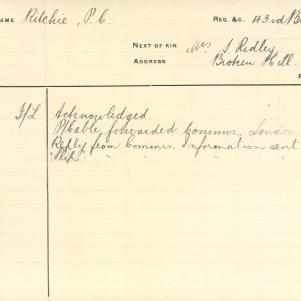 NAME Ritchie, P.C. REG. &C. 43rd B
NEXT OF KIN Mrs S Ridley
ADDRESS Broken Hill.
I/L Acknowledged
P/Cable forwarded Comms. London
Reply from Commrs. Information sent
"Skip" " " "